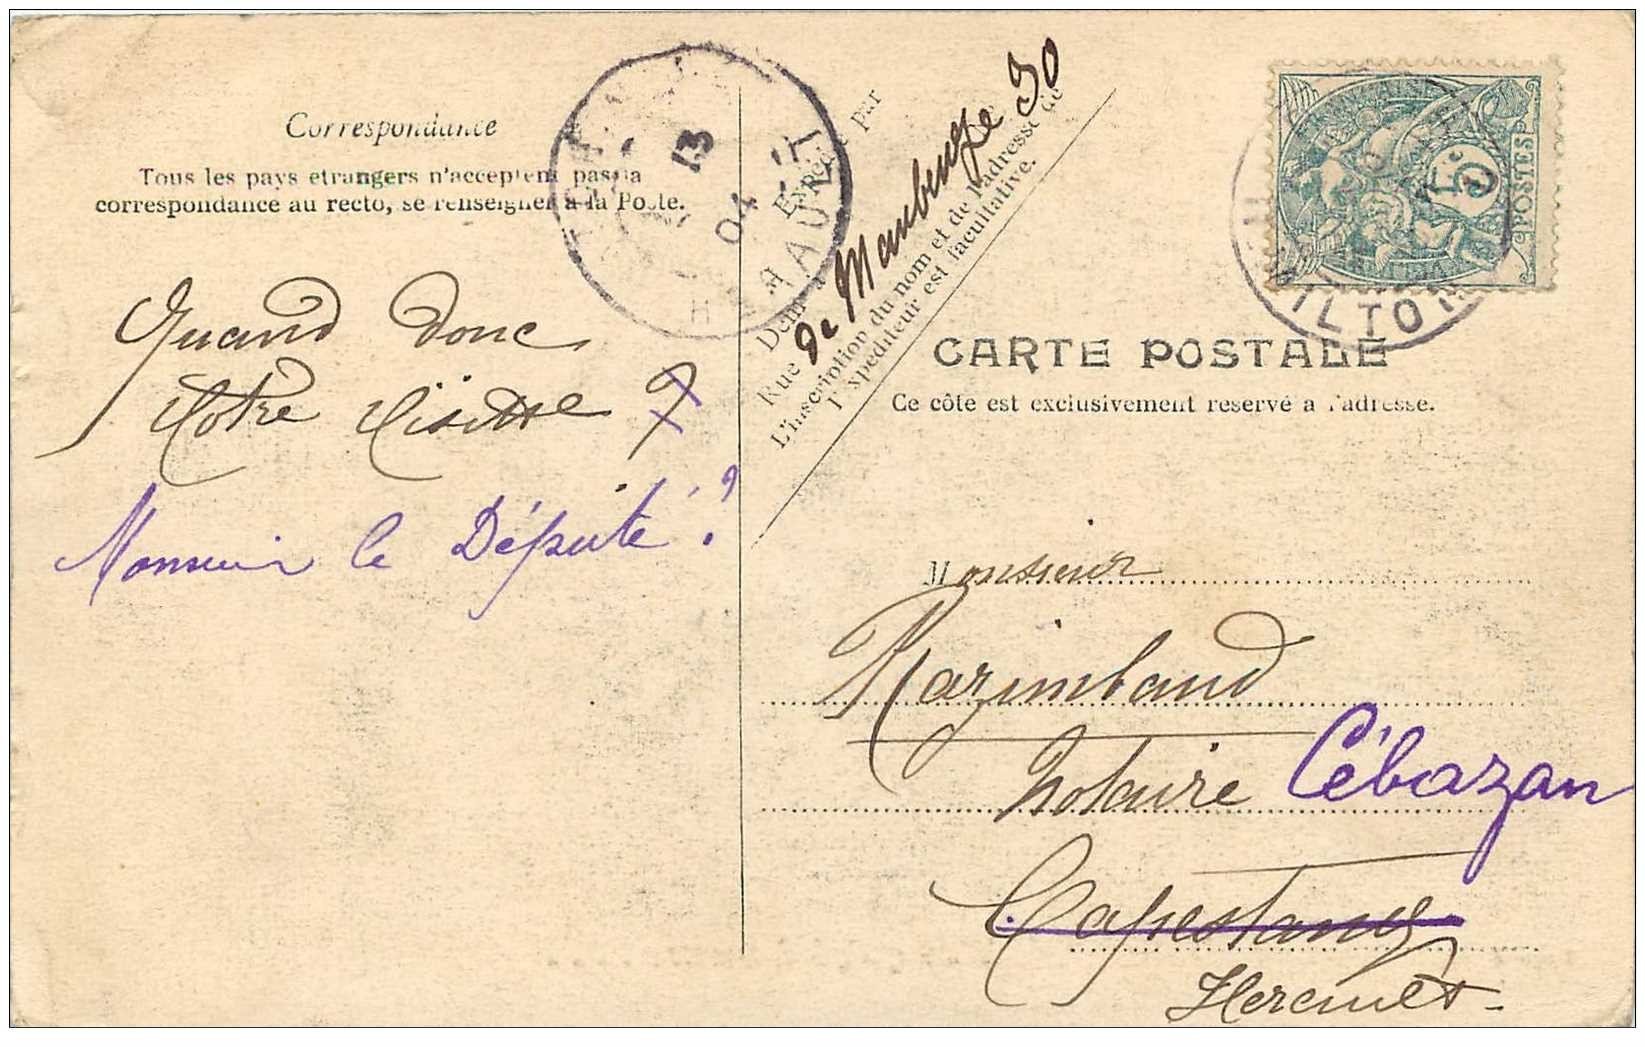 Correspondance
Tous les pays etrangers n'acceptent pas la
correspondance au recto, se renseigner a la Poste.
Quand donc
Votre Visette ?
Monsieur le Député ?
13
04
HERAULT
Expédié par
Dem
Rue de Maubeuge 30
L'inscription du nom et de l'adresse de
l'expéditeur est facultative.
POSTES
5c
MILTON
CARTE POSTALE
Ce côte est exclusivement reservé a l'adresse.
Monsieur
Razimbaud
Notaire Cébazan
Capestang
Herault